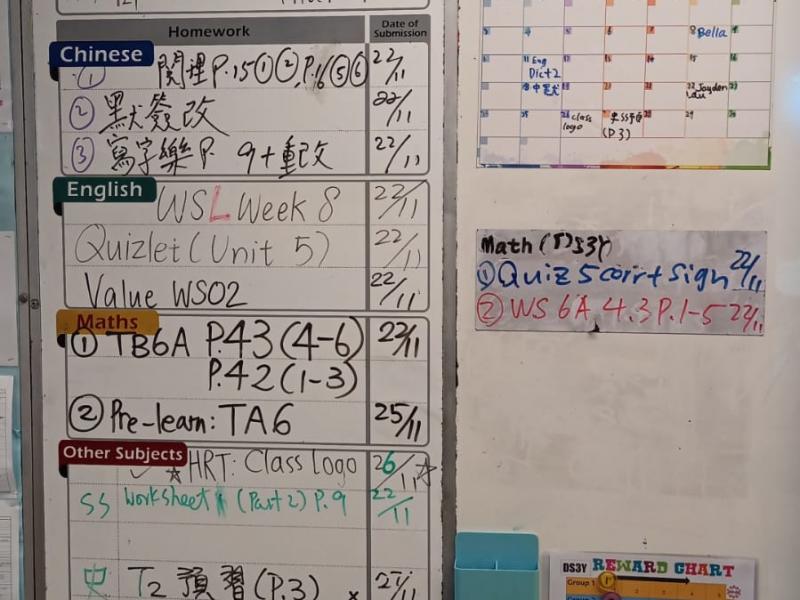 Homework
Date of Submission
Chinese
① 閱理 P.15①②, P.16⑤⑥ 22/11
② 默簽改 22/11
③ 寫字樂 P. 9+重改 22/11
English
WSL Week 8 22/11
Quizlet (Unit 5) 22/11
Value WS02 22/11
Maths
① TB6A P.43 (4-6) 22/11
P.42 (1-3)
② Pre-learn: TA6 25/11
Other Subjects
☆HRT: Class logo 26/11☆
SS Worksheet (Part 2) P.9 22/11
史 T2 預習 (P.3)
Bella
Eng
Dict 2
Jayden
Lau
class
logo
(P.3)
Math (T)S3Y
① Quiz 5 corr + Sign 22/11
② WS 6A 4.3 P.1-5 22/11
DS3Y REWARD CHART
Group 1